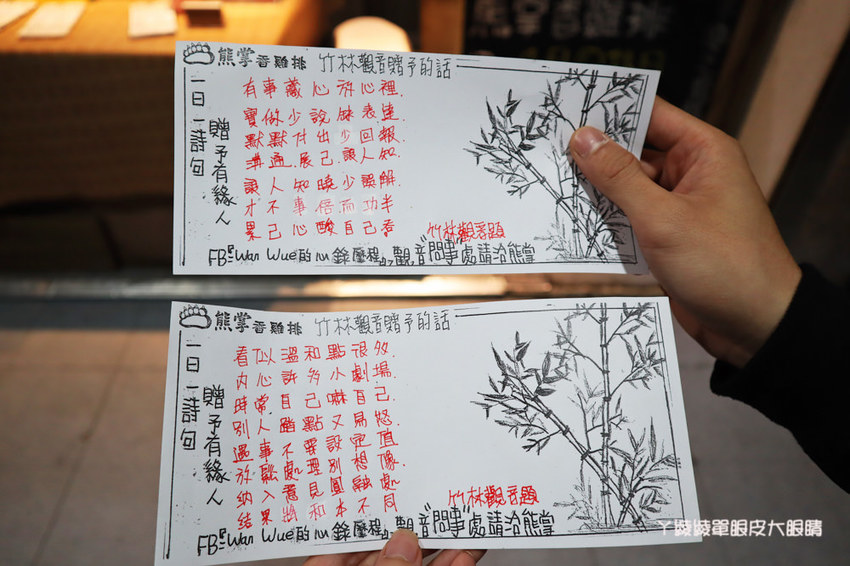 熊掌香雞排 竹林觀音贈予的話
有事藏心沁心裡.
實做少說缺表達
默默付出少回報
溝通.展己.讓人知.
讓人知曉少誤解
才不事倍而功半
果己心酸自己吞
竹林觀音題
一日一詩句
贈予有緣人
FB的Wan Wue的心錄歷程 觀音"問事"處請洽熊掌
熊掌香雞排 竹林觀音贈予的話
看似溫和點很多.
內心許多小劇場.
時常自己嚇自己.
別人踏點又易怒
遇事不要設定值
放鬆處理別想像.
納入意見圓融處
結果將和本不同
竹林觀音題
一日一詩句
贈予有緣人
Wan Wue的心錄歷程 觀音"問事"處請洽熊掌
ㄚ綾綾單眼皮大眼睛